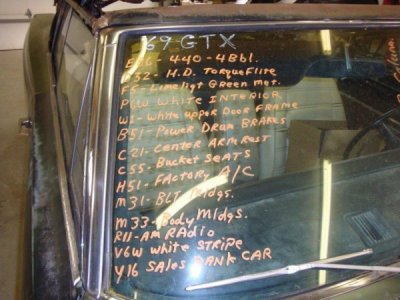 '69 GTX
E86-440-4Bbl.
D32- H.D. TorqueFlite
F5- Limeligt Green Met.
P6W White INTERIOR
W1- White upper Door FRAME
B51- Power Drum BRAKES
C21- Center ARMREST
C55- Bucket SEATS
H51- FActory A/C
M31- BLT Mldgs.
M33- Body Mldgs.
R11- AM RADio
V6W white STRIPe
Y16 SALes BANK CAR